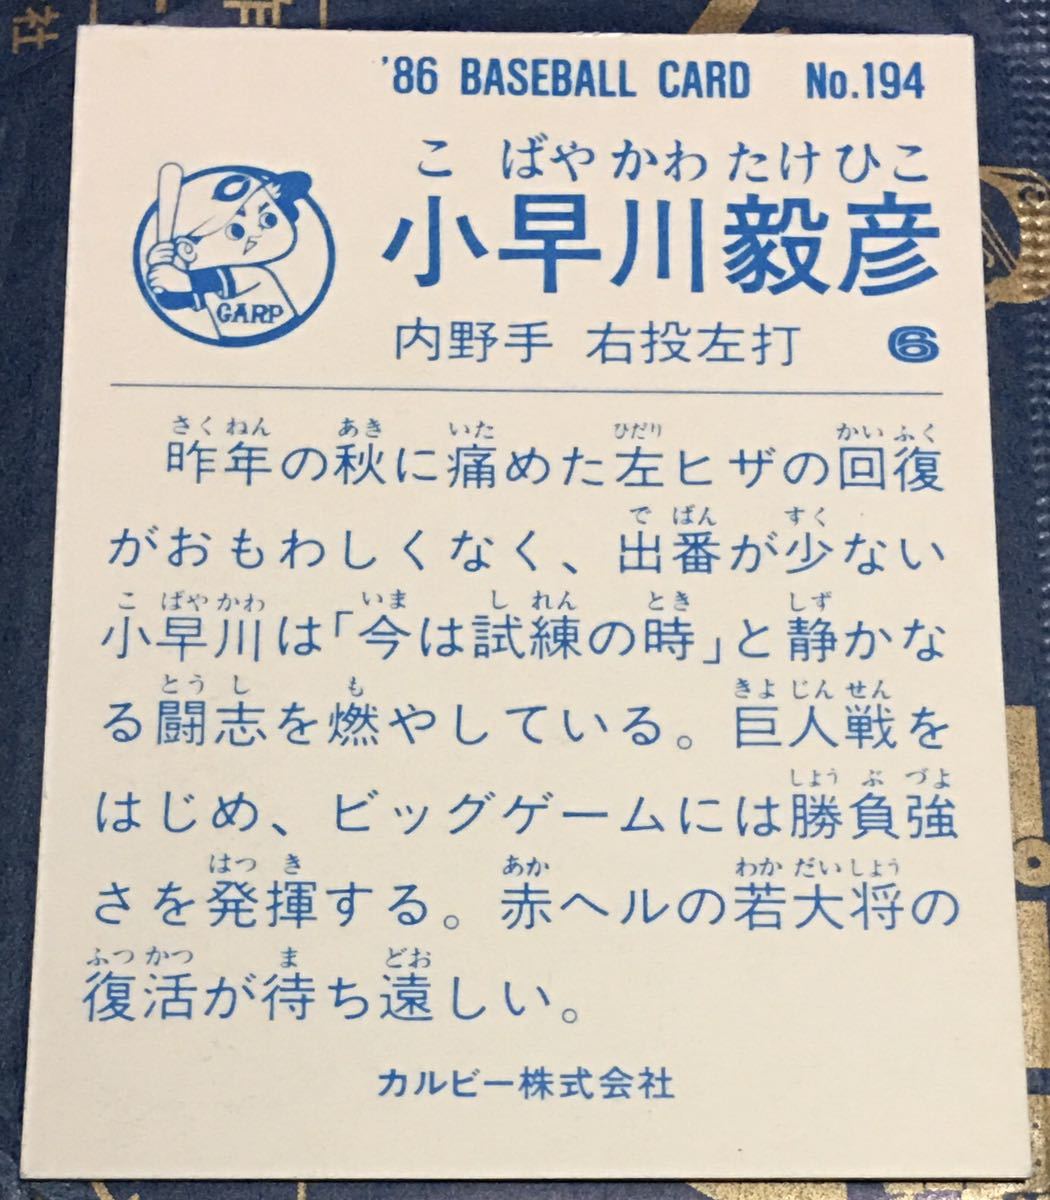 '86 BASEBALL CARD No.194
こ ばやかわたけひこ
小早川毅彦
CARP
内野手 右投左打 6
さくねん あき いた ひだり かいふく
昨年の秋に痛めた左ヒザの回復
で ばん すく
がおもわしくなく、出番が少ない
こ ばやかわ いま し れん とき しず
小早川は「今は試練の時」と静かな
とう し も きよ じん せん
る闘志を燃やしている。巨人戦を
しよう ぶ づよ
はじめ、ビッグゲームには勝負強
はつ き あか わか だい しよう
さを発揮する。赤ヘルの若大将の
ふつ かつ ま どお
復活が待ち遠しい。
カルビー株式会社